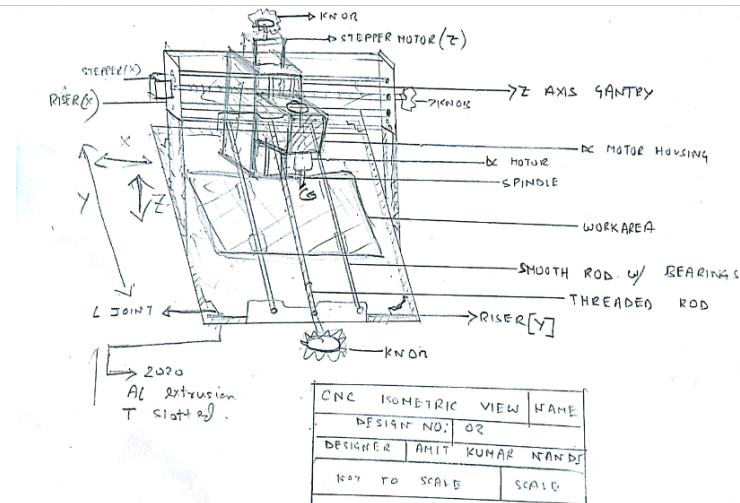 KNOB
STEPPER MOTOR (Z)
STEPPER(X)
RISER(X)
Z AXIS GANTRY
KNOB
X
DC MOTOR HOUSING
DC MOTOR
SPINDLE
Y
Z
WORKAREA
SMOOTH ROD. W/ BEARINGS
THREADED ROD
L JOINT
RISER[Y]
KNOB
2020
AL extrusion
T slotted.
CNC ISOMETRIC VIEW NAME
DESIGN NO: 02
DESIGNER AMIT KUMAR NANDI
NOT TO SCALE SCALE